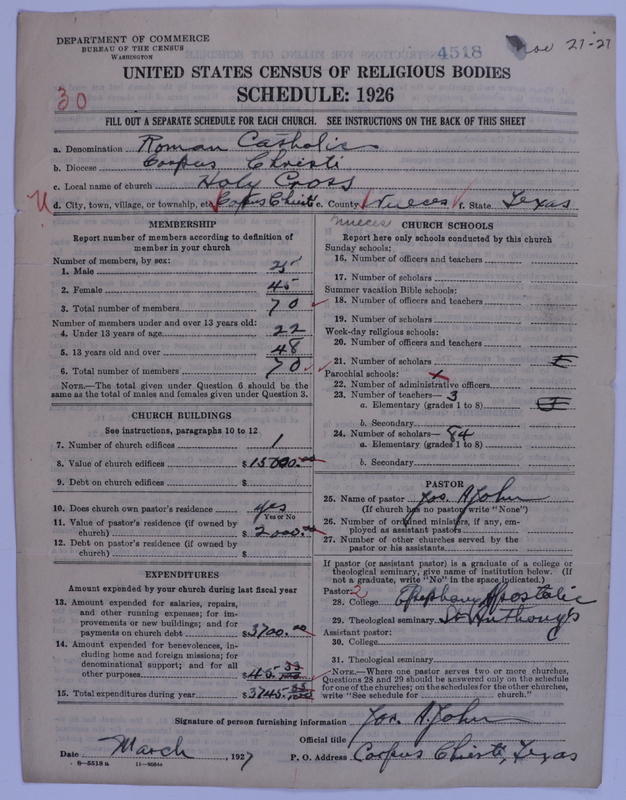 DEPARTMENT OF COMMERCE
BUREAU OF THE CENSUS
WASHINGTON
4518
Nov 21-27
UNITED STATES CENSUS OF RELIGIOUS BODIES
30
SCHEDULE: 1926
FILL OUT A SEPARATE SCHEDULE FOR EACH CHURCH. SEE INSTRUCTIONS ON THE BACK OF THIS SHEET
a. Denomination Roman Catholic
b. Diocese Corpus Christi
c. Local name of church Holy Cross
d. City, town, village, or township, etc. Corpus Christi e. County Nueces f. State Texas
Nueces
MEMBERSHIP
Report number of members according to definition of
member in your church
Number of members, by sex:
1. Male 25
2. Female 45
3. Total number of members 70
Number of members under and over 13 years old:
4. Under 13 years of age 22
5. 13 years old and over 48
6. Total number of members 70
NOTE.—The total given under Question 6 should be the
same as the total of males and females given under Question 3.
CHURCH BUILDINGS
See instructions, paragraphs 10 to 12
7. Number of church edifices 1
8. Value of church edifices $15000.00
9. Debt on church edifices $
10. Does church own pastor's residence yes
Yes or No
11. Value of pastor's residence (if owned by
church) $2000.00
12. Debt on pastor's residence (if owned by
church) $
EXPENDITURES
Amount expended by your church during last fiscal year
13. Amount expended for salaries, repairs,
and other running expenses; for im-
provements or new buildings; and for
payments on church debt $3700.00
14. Amount expended for benevolences, in-
cluding home and foreign missions; for
denominational support; and for all
other purposes $45.33
15. Total expenditures during year $3745.33
CHURCH SCHOOLS
Report here only schools conducted by this church
Sunday schools:
16. Number of officers and teachers
17. Number of scholars
Summer vacation Bible schools:
18. Number of officers and teachers
19. Number of scholars
Week-day religious schools:
20. Number of officers and teachers
21. Number of scholars
Parochial schools: x
22. Number of administrative officers
23. Number of teachers— 3
a. Elementary (grades 1 to 8)
b. Secondary
24. Number of scholars— 84
a. Elementary (grades 1 to 8)
b. Secondary
PASTOR
25. Name of pastor Jos. A. John
(If church has no pastor write "None")
26. Number of ordained ministers, if any, em-
ployed as assistant pastors
27. Number of other churches served by the
pastor or his assistants
If pastor (or assistant pastor) is a graduate of a college or
theological seminary, give name of institution below. (If
not a graduate, write "No" in the space indicated.)
Pastor: 2
28. College Epiphany Apostolic
29. Theological seminary St Anthony's
Assistant pastor:
30. College
31. Theological seminary
NOTE.—Where one pastor serves two or more churches,
Questions 28 and 29 should be answered only on the schedule
for one of the churches; on the schedules for the other churches,
write "See schedule for church."
Signature of person furnishing information Jos. A. John
Official title
Date March, 1927 P. O. Address Corpus Christi, Texas
8-5518 a